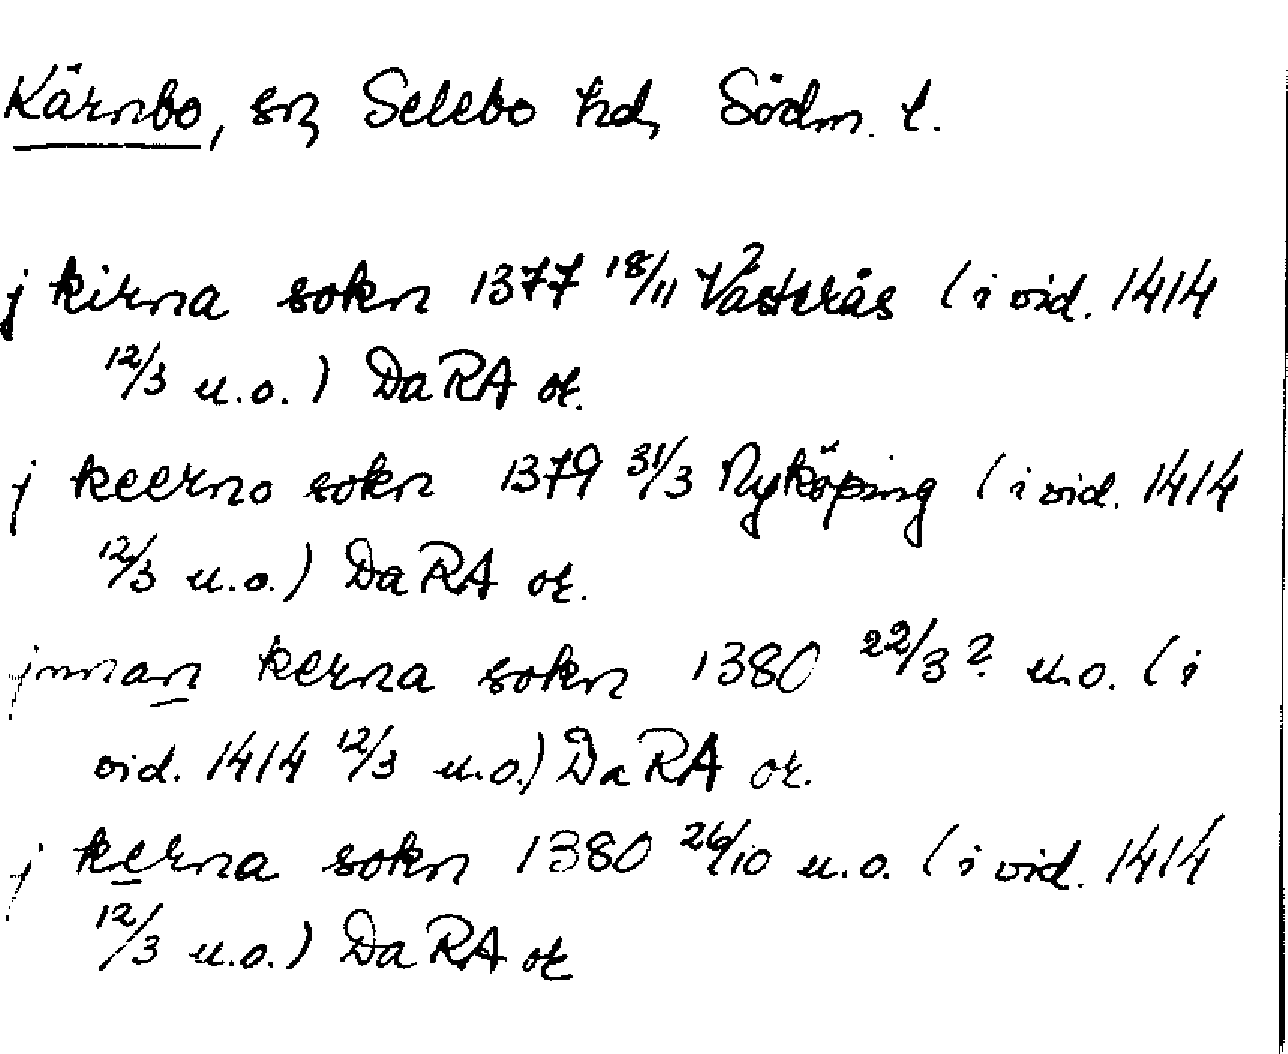 Kärnbo, sn, Selebo hd, Södm. l.
j kirna sokn 1377 18/11 Västerås (i vid. 1414
12/3 u.o.) DaRA or.
j keerno sokn 1379 31/3 Nyköping (i vid. 1414
12/3 u.o.) DaRA or.
jnnan kerna sokn 1380 22/3? u.o. (i
vid. 1414 12/3 u.o.) DaRA or.
j kerna sokn 1380 26/10 u.o. (i vid. 1414
12/3 u.o.) DaRA or